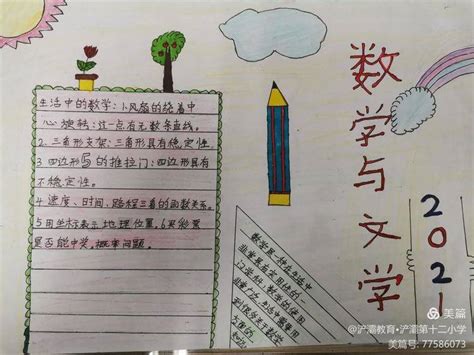 数学与文学
2021
生活中的数学：小风扇的绕着中
心旋转：过一点有无数条直线。
2. 三角形支架：三角形具有稳定性。
3 四边形5的推拉门：四边形具有
不稳定性。
4 速度、时间、路程三者的函数关系。
5 用坐标表示地理位置，6 买彩票
是否能中奖，概率问题。
数学是一种在生活中
非常
门学科，数学的使用
美篇
@浐灞教育•浐灞第十二小学
美篇号: 77586073